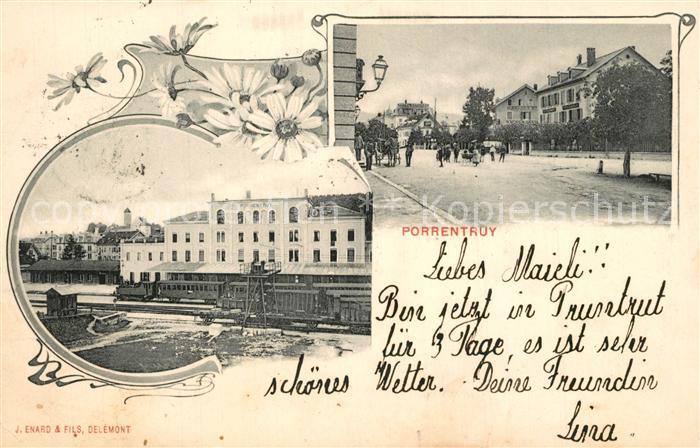 PORRENTRUY
Liebes Maieli!!
Bin jetzt in Pruntrut
für 3 Tage, es ist sehr
schönes Wetter. Deine Freundin
Lina.
J. ENARD & FILS, DELÉMONT
ansichtskartenversand Kopierschutz